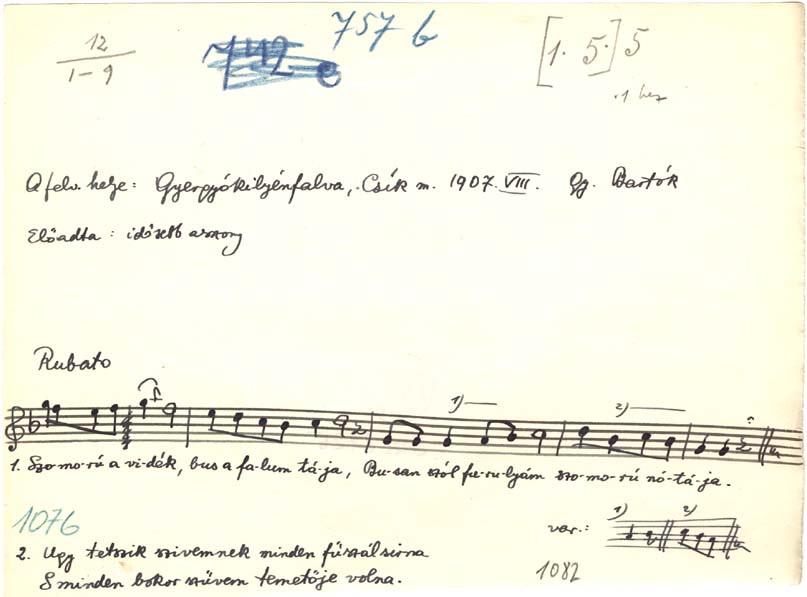 12
1-9
742 e
757 b
[1. 5.] 5
A felv. helye: Gyergyókilyénfalva, Csík m. 1907. VIII. Gy. Bartók
Előadta: idősebb asszony
Rubato
1) 2)
1. Szo-mo-rú a vi-dék, bus a fa-lum tá-ja, Bu-san szól fu-ru-lyám szo-mo-rú nó-tá-ja.
1076
1) 2)
var.:
2. Ugy tetszik szivemnek minden fűszál sirna
S minden bokor szüvem temetője volna.
1082